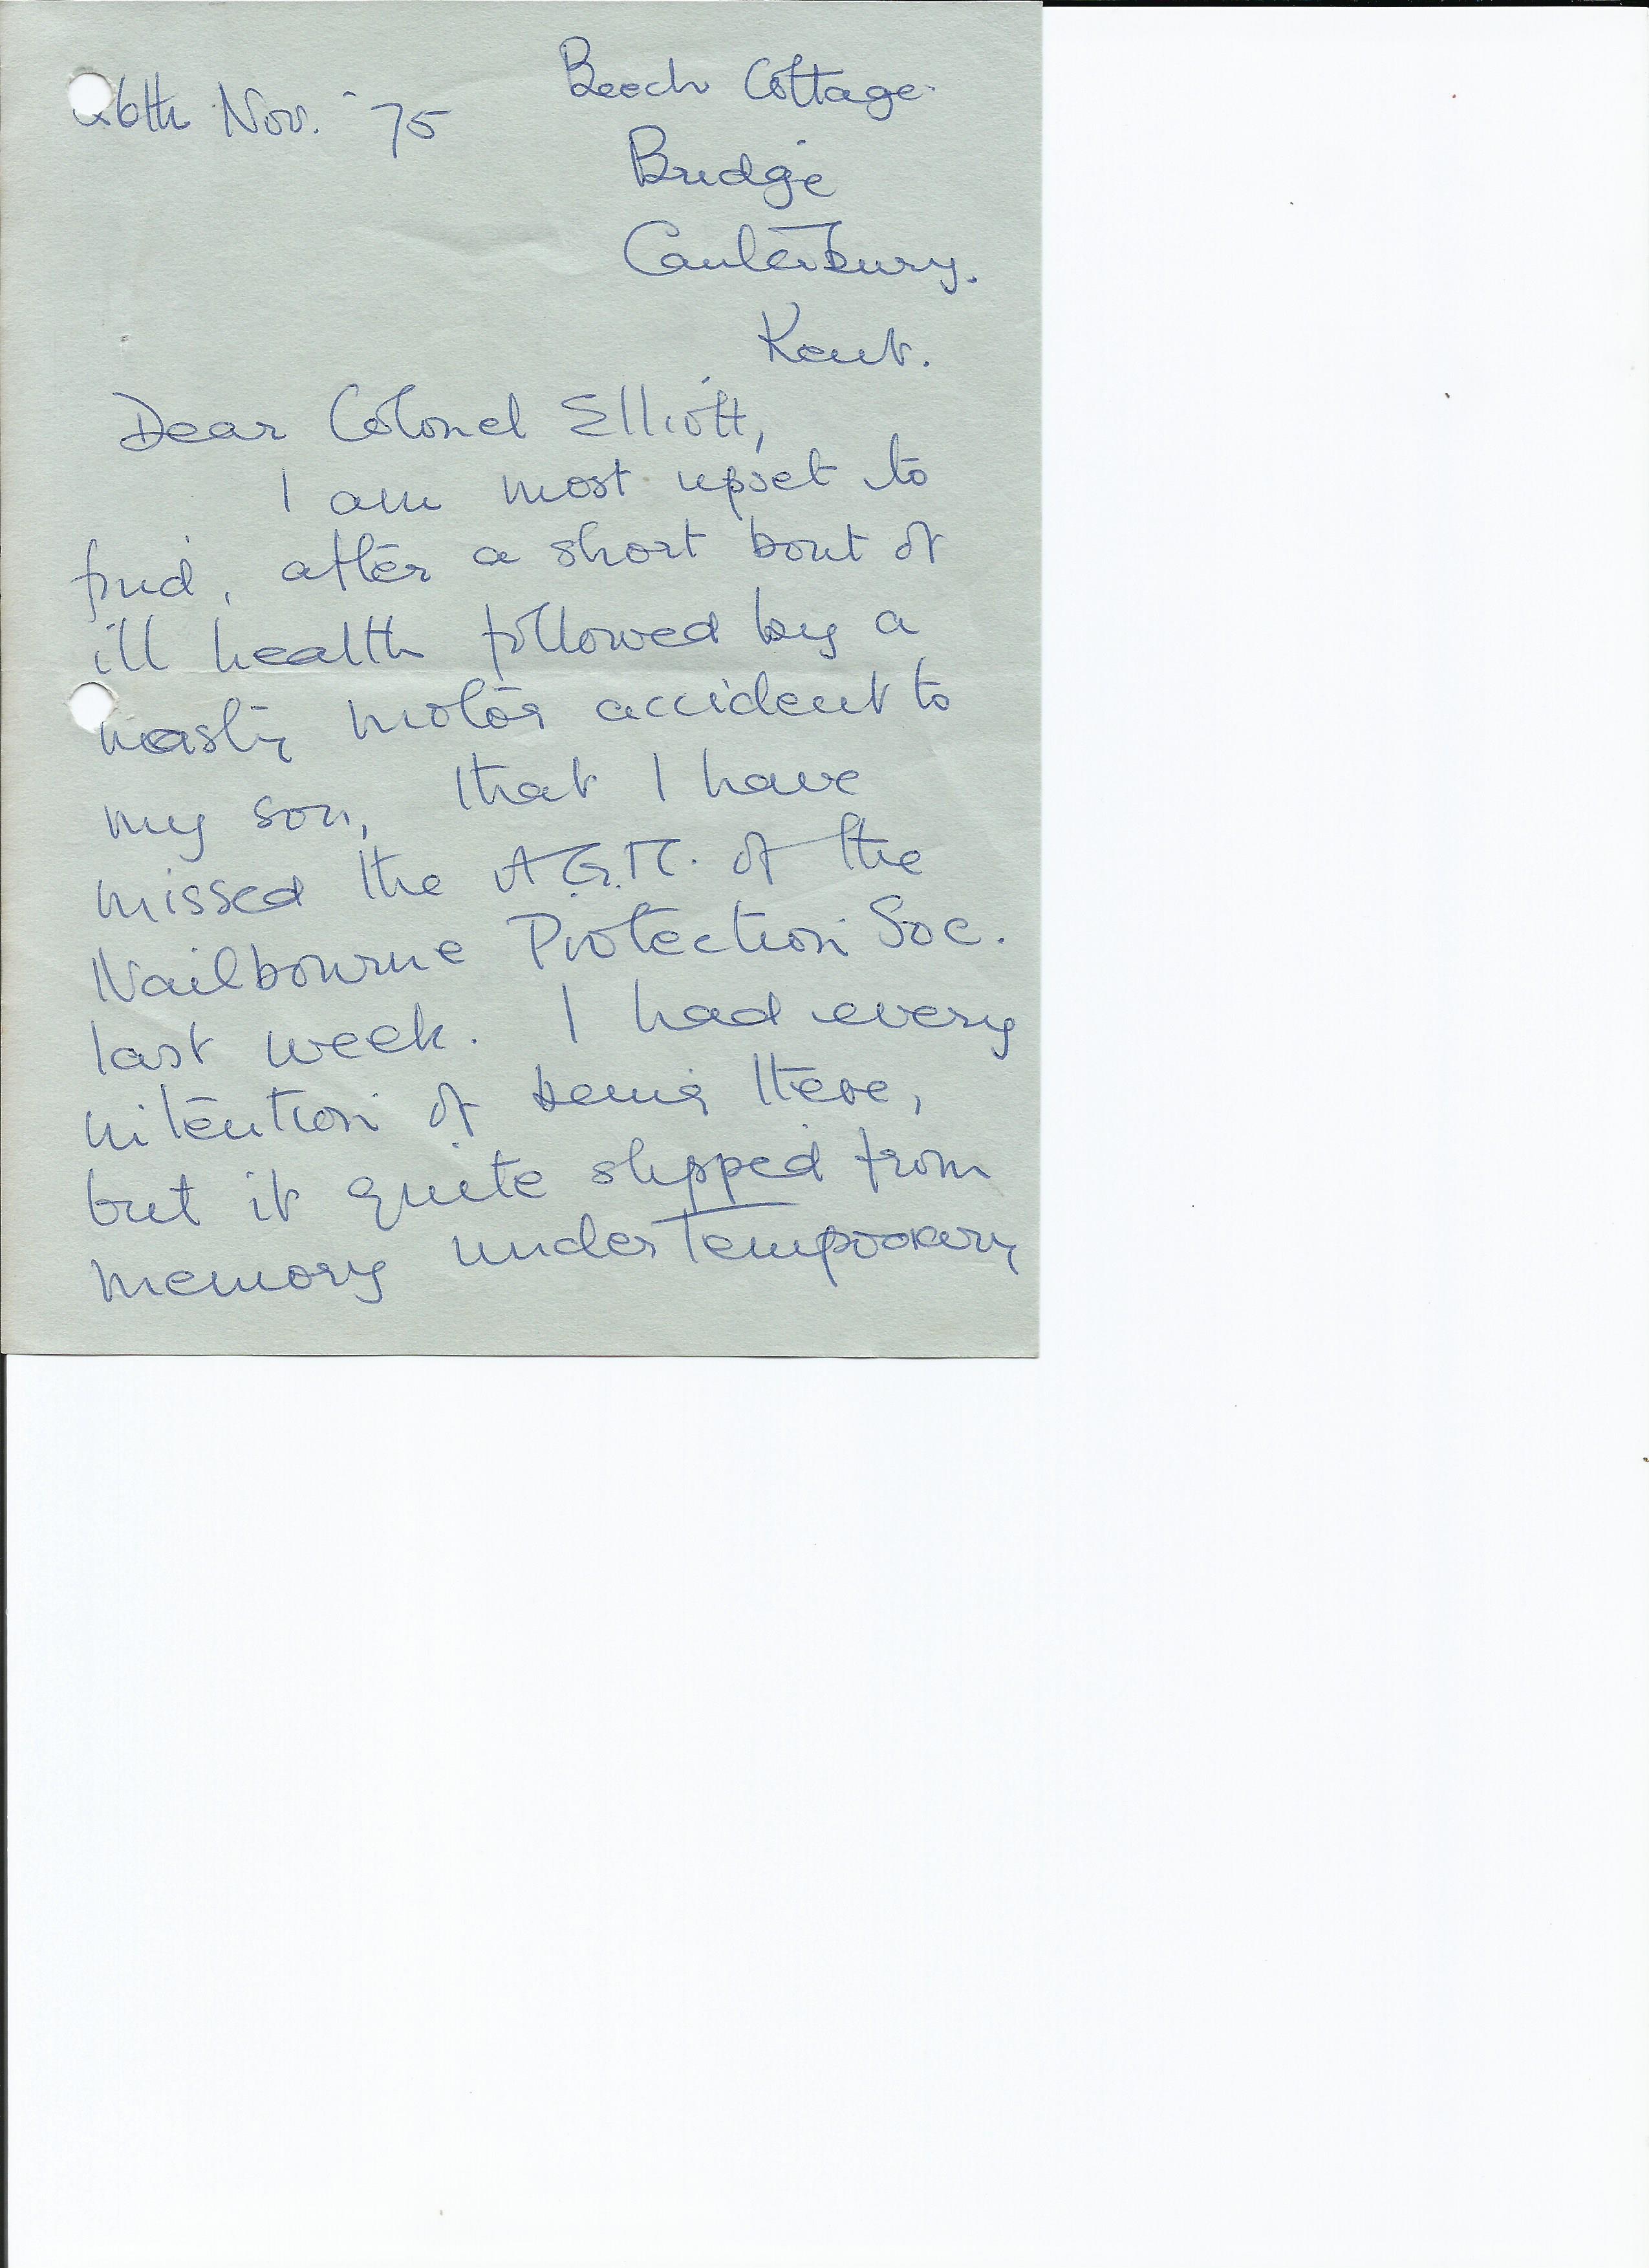 26th Nov. '75
Beech Cottage.
Bridge
Canterbury.
Kent.
Dear Colonel Elliott,
I am most upset to
find, after a short bout of
ill health followed by a
nasty motor accident to
my son, that I have
missed the A.G.M. of the
Nailbourne Protection Soc.
last week. I had every
intention of being there,
but it quite slipped from
memory under temporary